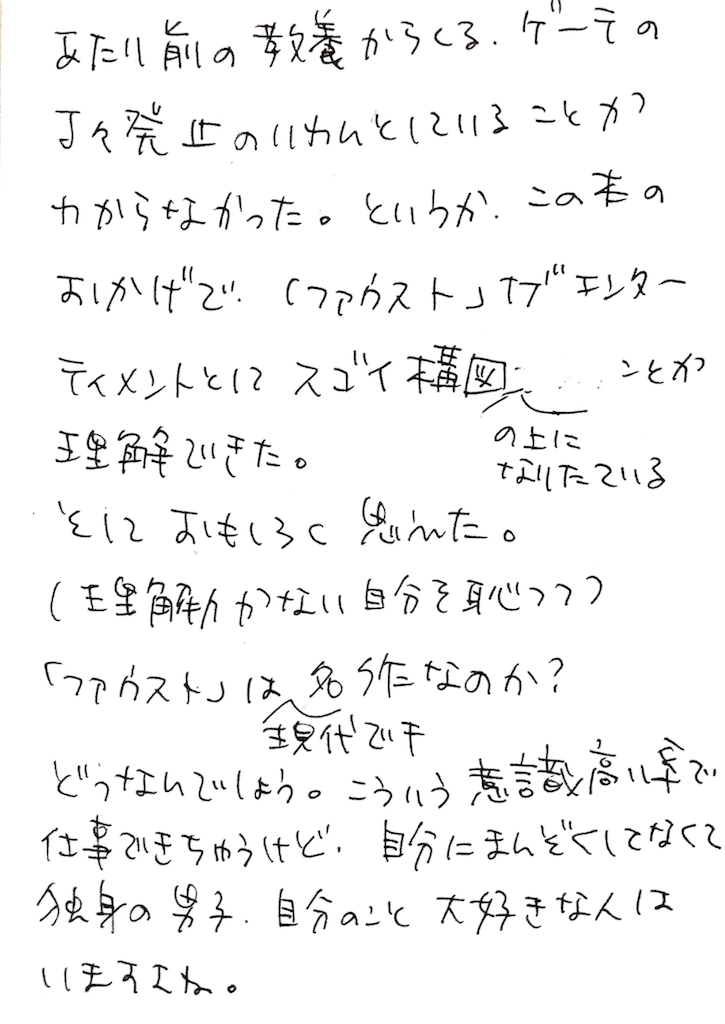 あたり前の教養からくる、ゲーテの
丁々発止のいわんとしていることが
わからなかった。というか、この本の
おかげで、「ファウスト」がエンター
ティメントとして スゴイ構図 ことが
の上に
なりたっている
理解できた。
そして おもしろく 思えた。
(理解力がない自分を恥つつ)
「ファウスト」は 名作なのか?
現代でも
どうなんでしょう。こういう意識高い系で
仕事できちゃうけど、自分にまんぞくしてなくて
独身の男子、自分のこと 大好きな人は
いますよね。